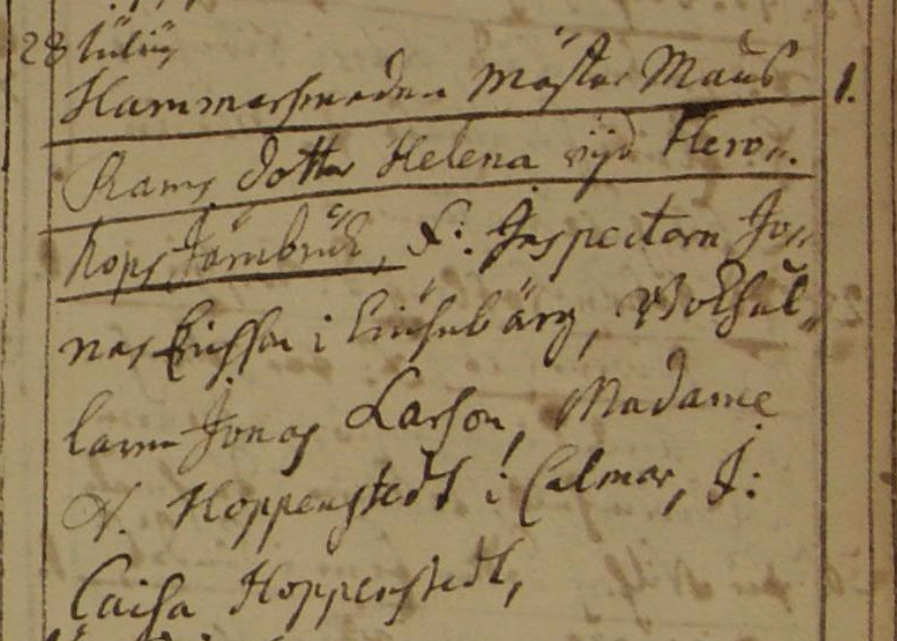 28 Julii,
Hammarsmeden Mäster Maus 1.
Rams dotter Helena vijd Hero..
hops Järnbruk, F: Inspectorn Jo..
nas Ericsson i Linsbärg, Bokhål..
laren Jonas Larson, Madame
A. Hoppenstedt i Calmar, J:
Caisa Hoppenstedt,